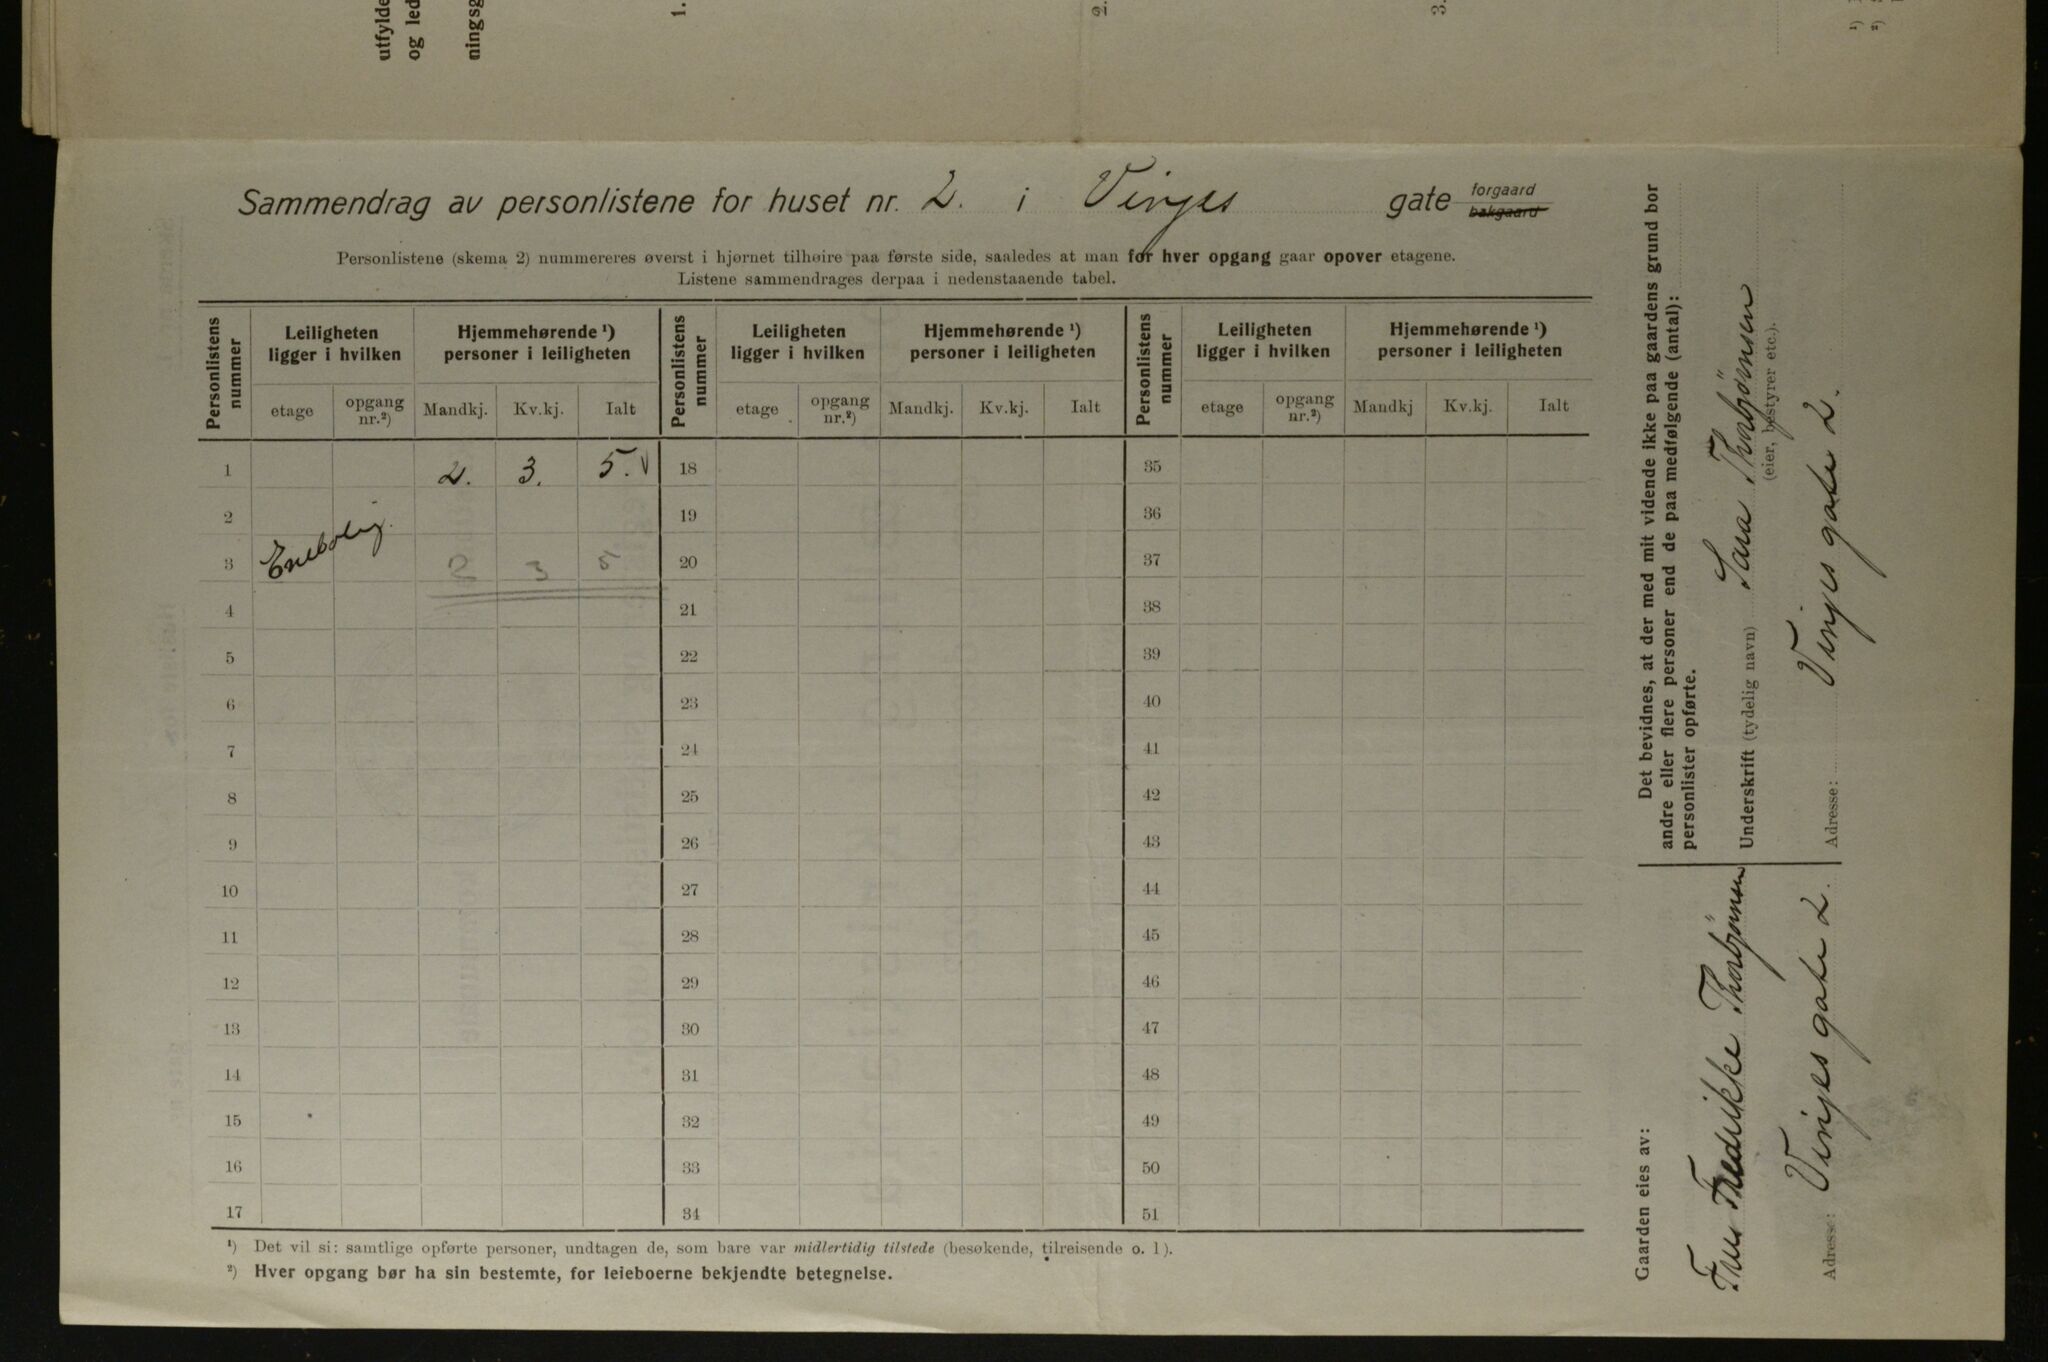 utfylde
og led
ningsg
1.
2.
3.
¹)
²)
Sammendrag av personlistene for huset nr. 2. i Vinjes gate forgaard
bakgaard
Personlistene (skema 2) nummereres øverst i hjørnet tilhøire paa første side, saaledes at man for hver opgang gaar opover etagene.
Listene sammendrages derpaa i nedenstaaende tabel.
Personlistens nummer Leiligheten ligger i hvilken Hjemmehørende ¹) personer i leiligheten Personlistens nummer Leiligheten ligger i hvilken Hjemmehørende ¹) personer i leiligheten Personlistens nummer Leiligheten ligger i hvilken Hjemmehørende ¹) personer i leiligheten
etage opgang nr.²) Mandkj. Kv.kj. Ialt etage opgang nr.²) Mandkj. Kv.kj. Ialt etage opgang nr.²) Mandkj Kv.kj. Ialt
1 2. 3. 5. V 18 35
2 19 36
3 Enebolig. 2 3 5 20 37
4 21 38
5 22 39
6 23 40
7 24 41
8 25 42
9 26 43
10 27 44
11 28 45
12 29 46
13 30 47
14 31 48
15 32 49
16 33 50
17 34 51
¹) Det vil si: samtlige opførte personer, undtagen de, som bare var midlertidig tilstede (besøkende, tilreisende o. l).
²) Hver opgang bør ha sin bestemte, for leieboerne bekjendte betegnelse.
Det bevidnes, at der med mit vidende ikke paa gaardens grund bor
andre eller flere personer end de paa medfølgende (antal):
personlister opførte.
Underskrift (tydelig navn) Sara Thorbjörnsen
(eier, bestyrer etc.).
Adresse: Vinjes gate 2.
Gaarden eies av:
Fru Fredrikke Thorbjörnsen
Adresse: Vinjes gate 2.